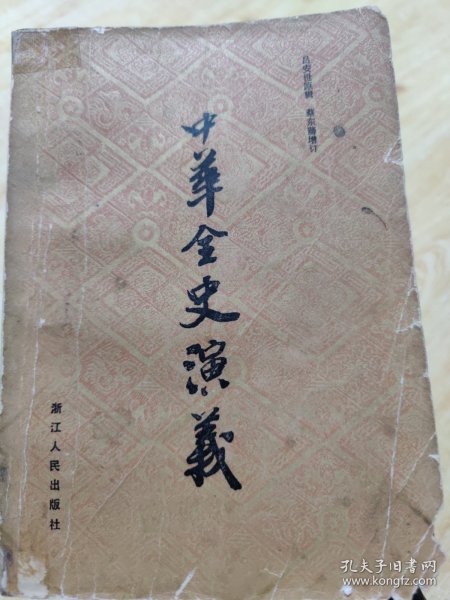 吕安世原辑 蔡东藩增订
中華全史演義
浙江人民出版社
孔夫子旧书网
www.kongfz.com